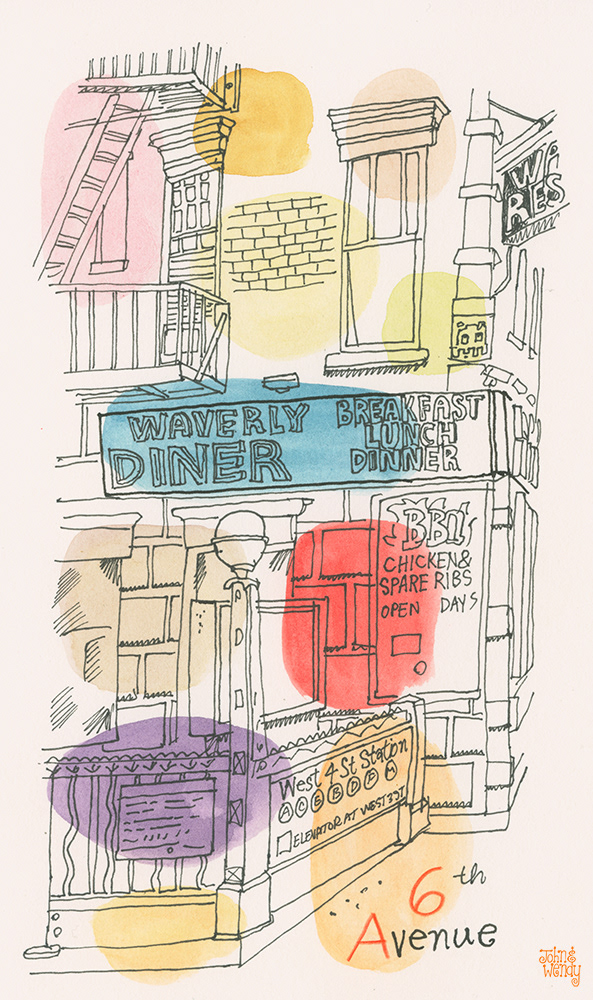 WA
RES
WAVERLY
DINER
BREAKFAST
LUNCH
DINNER
BBQ
CHICKEN &
SPARE RIBS
OPEN DAYS
West 4 St Station
A C E B D F M
ELEVATOR AT WEST 3 ST
6th
Avenue
John &
Wendy